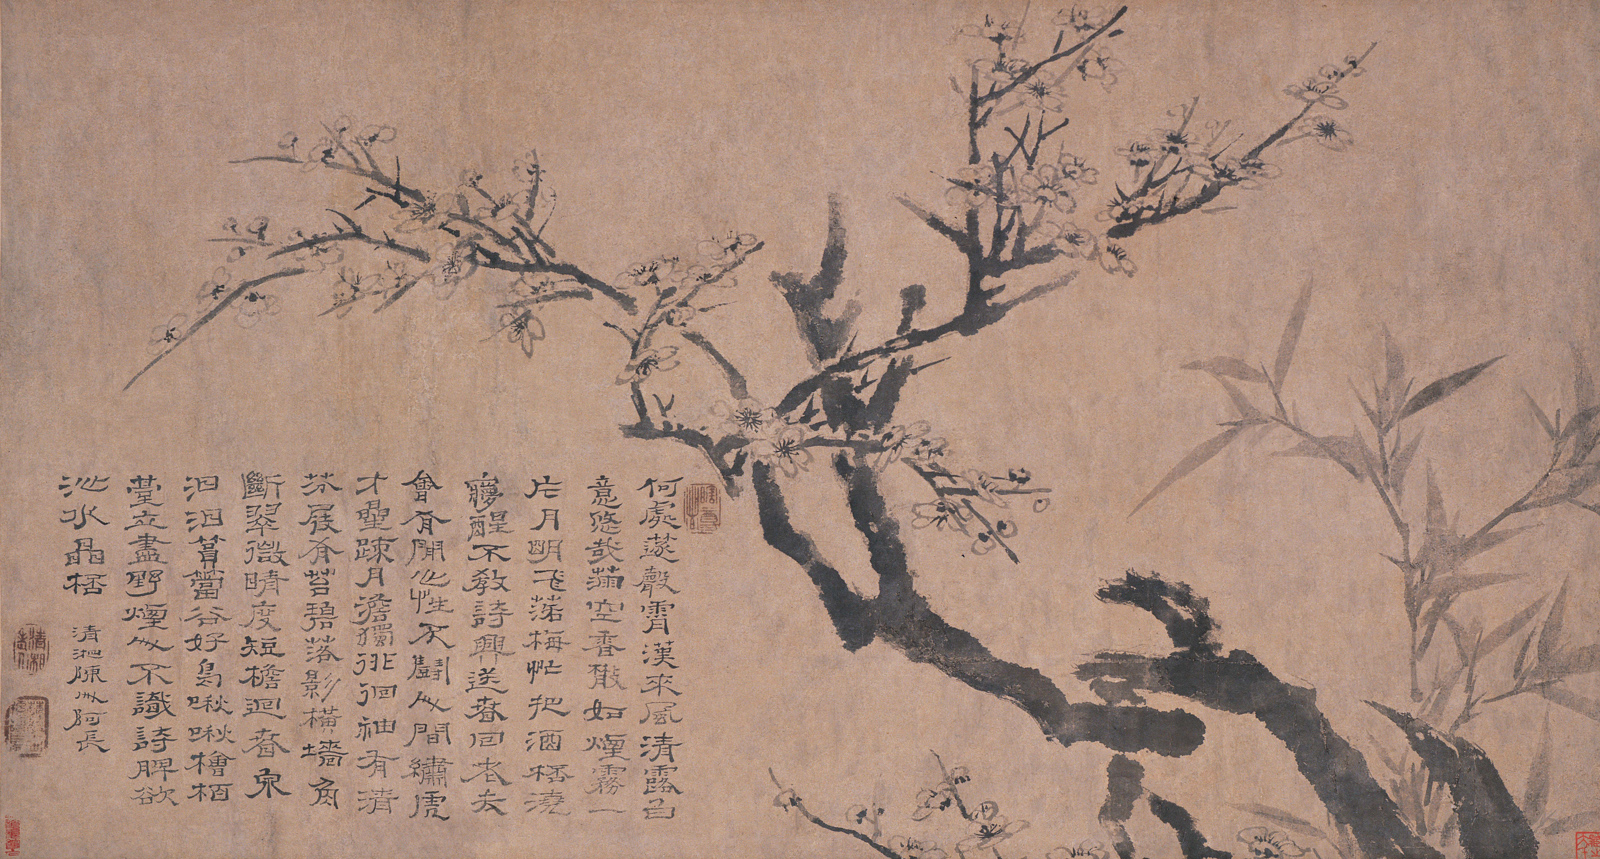 何處霄漢來風清露白
意悠哉滿空香散如煙霧一
片月明飛落梅忙把酒桮澆
醒不敎詩興送春回老夫
會有閒心性不鬭人間繡虎
才疊疎月澹獨徘徊袖有清
芬屐有苔碧落影橫墻角
斷翠微晴度短檐迴春泉
汩汩篔簹谷好鳥啾啾檜栢
臺立盡野煙人不識詩脾欲
沁水晶桮
清湘陳人阿長